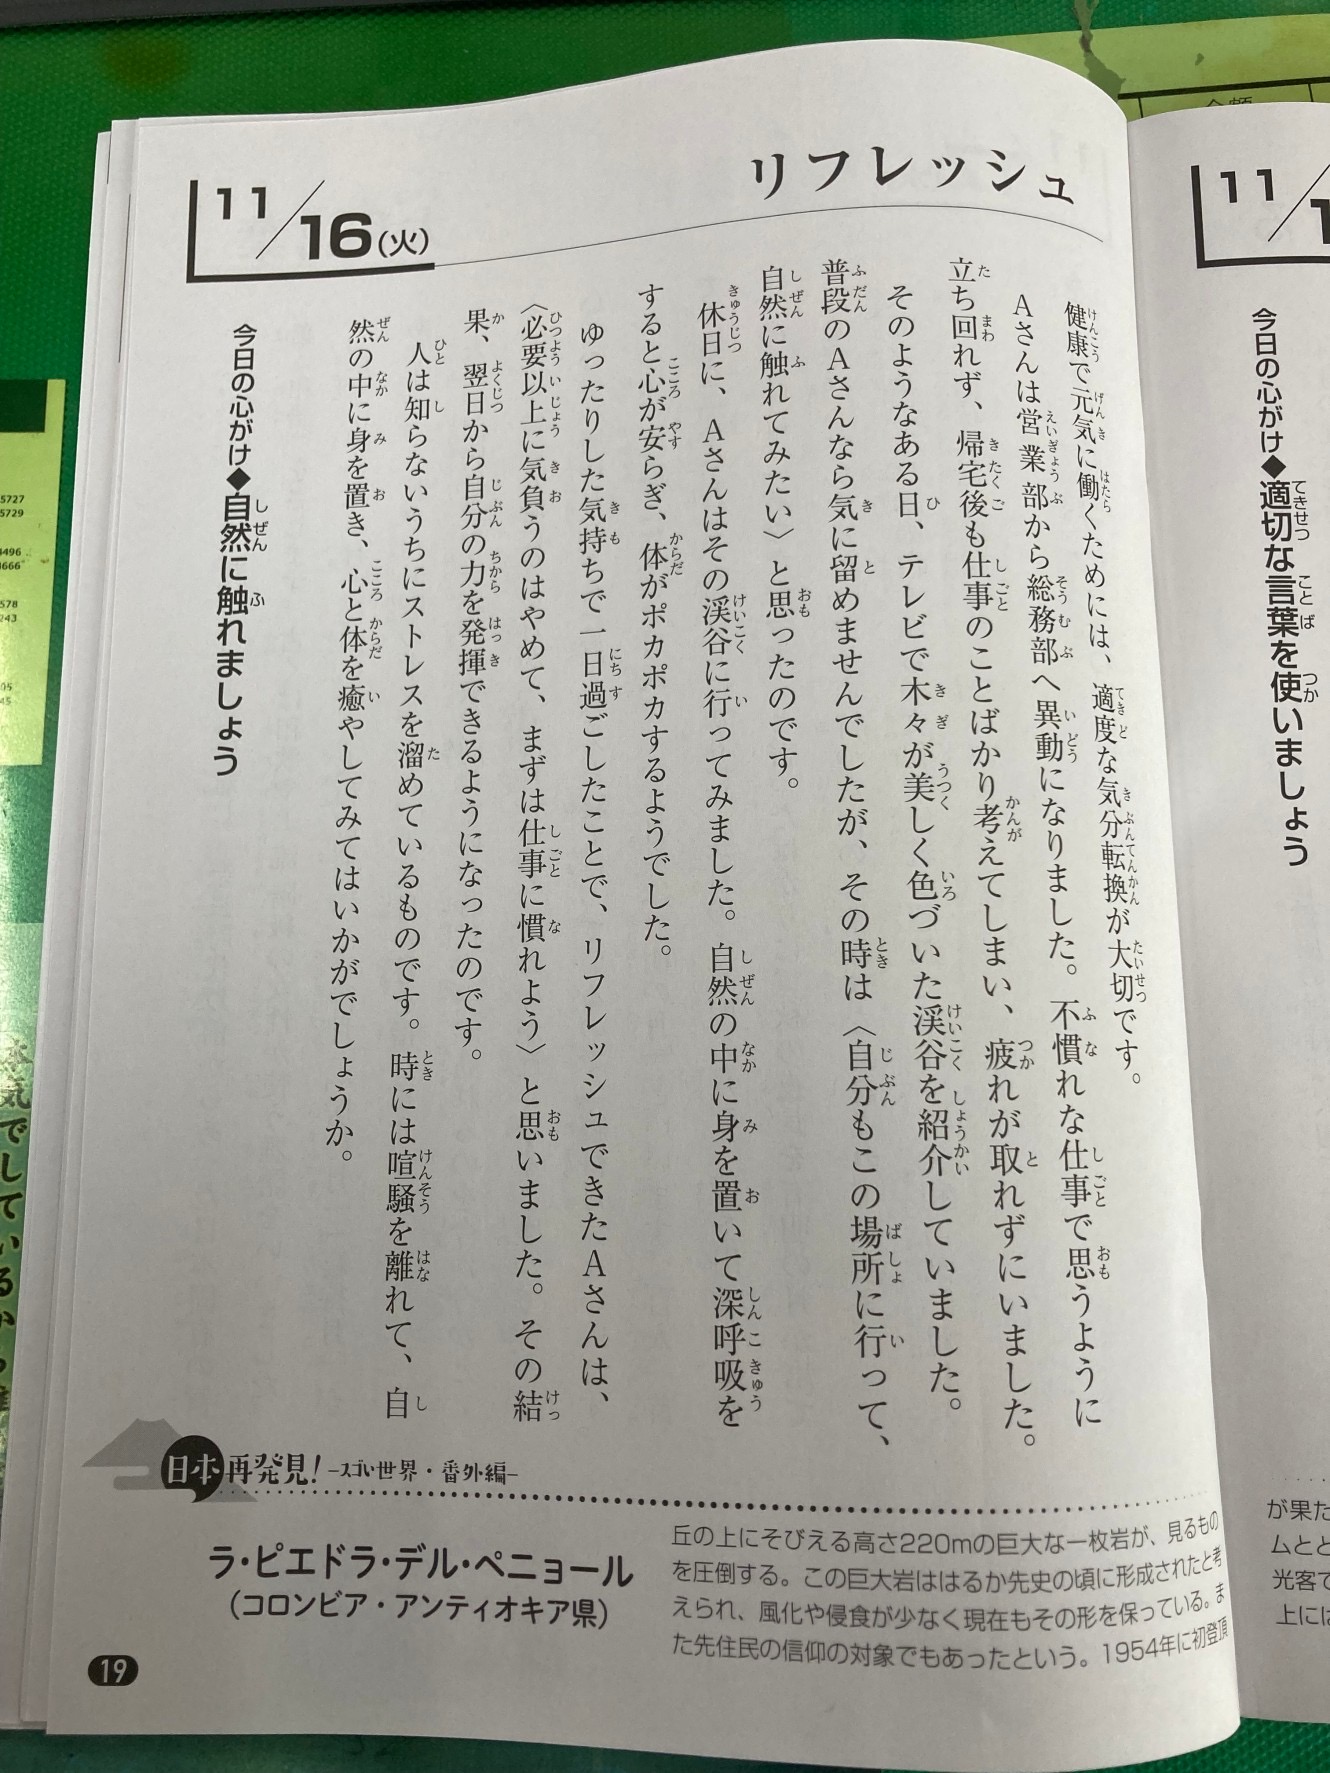 リフレッシュ
11/16(火)
健康で元気に働くためには、適度な気分転換が大切です。
Aさんは営業部から総務部へ異動になりました。不慣れな仕事で思うように
立ち回れず、帰宅後も仕事のことばかり考えてしまい、疲れが取れずにいました。
そのようなある日、テレビで木々が美しく色づいた渓谷を紹介していました。
普段のAさんなら気に留めませんでしたが、その時は〈自分もこの場所に行って、
自然に触れてみたい〉と思ったのです。
休日に、Aさんはその渓谷に行ってみました。自然の中に身を置いて深呼吸を
すると心が安らぎ、体がポカポカするようでした。
ゆったりした気持ちで一日過ごしたことで、リフレッシュできたAさんは、
〈必要以上に気負うのはやめて、まずは仕事に慣れよう〉と思いました。その結
果、翌日から自分の力を発揮できるようになったのです。
人は知らないうちにストレスを溜めているものです。時には喧騒を離れて、自
然の中に身を置き、心と体を癒やしてみてはいかがでしょうか。
今日の心がけ◆自然に触れましょう
日本再発見!-スゴい世界・番外編-
ラ・ピエドラ・デル・ペニョール
(コロンビア・アンティオキア県)
丘の上にそびえる高さ220mの巨大な一枚岩が、見るもの
を圧倒する。この巨大岩ははるか先史の頃に形成されたと考
えられ、風化や侵食が少なく現在もその形を保っている。ま
た先住民の信仰の対象でもあったという。1954年に初登頂
19
11/1
今日の心がけ◆適切な言葉を使いましょう
が果た
ムとと
光客で
上には
5727
5729
4496
578
243